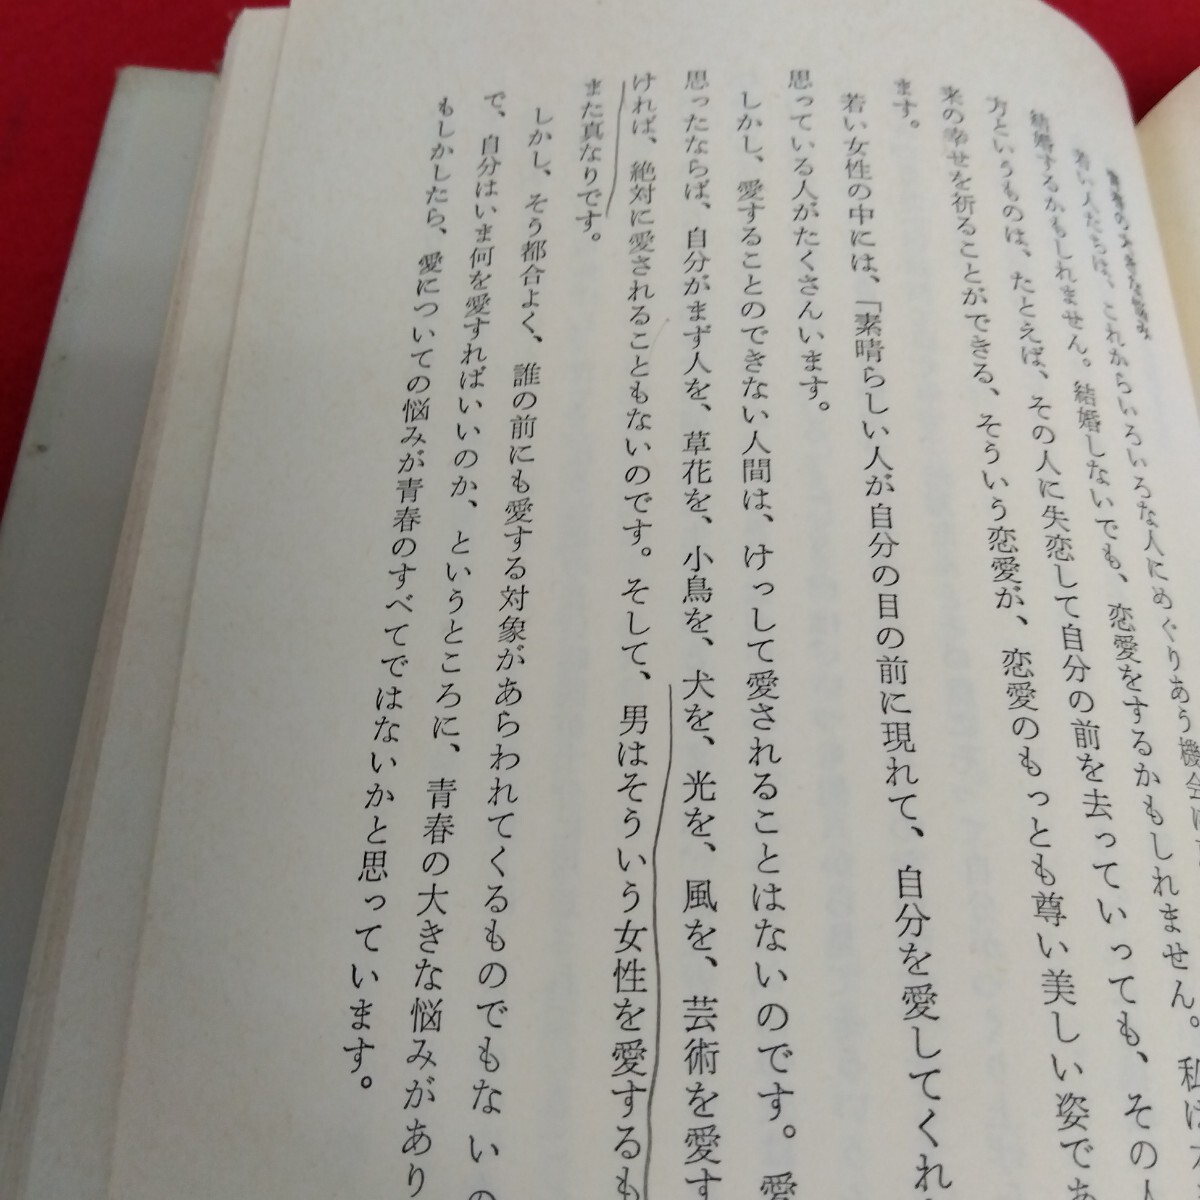 青春の大きな悩み
若い人たちは、これからいろいろな人にめぐりあう機会
結婚するかもしれません。結婚しないでも、恋愛をするかもしれません。私は
方というものは、たとえば、その人に失恋して自分の前を去っていっても、その人
来の幸せを祈ることができる、そういう恋愛が、恋愛のもっとも尊い美しい姿であ
ます。
若い女性の中には、「素晴らしい人が自分の目の前に現れて、自分を愛してくれ
思っている人がたくさんいます。
しかし、愛することのできない人間は、けっして愛されることはないのです。愛
思ったならば、自分がまず人を、草花を、小鳥を、犬を、光を、風を、芸術を愛す
ければ、絶対に愛されることもないのです。そして、男はそういう女性を愛するも
また真なりです。
しかし、そう都合よく、誰の前にも愛する対象があらわれてくるものでもないの
で、自分はいま何を愛すればいいのか、というところに、青春の大きな悩みがあり
もしかしたら、愛についての悩みが青春のすべてではないかと思っています。